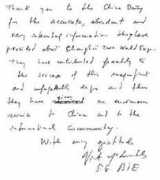 Thank you to the China Daily
for the accurate, abundant and
very interesting information they have
provided about Shanghai's World Expo.
They have contributed greatly to
the success of this magnificent
and unforgettable Expo and thus
they have given an enormous
service to China and to the
international community.
With my gratitude